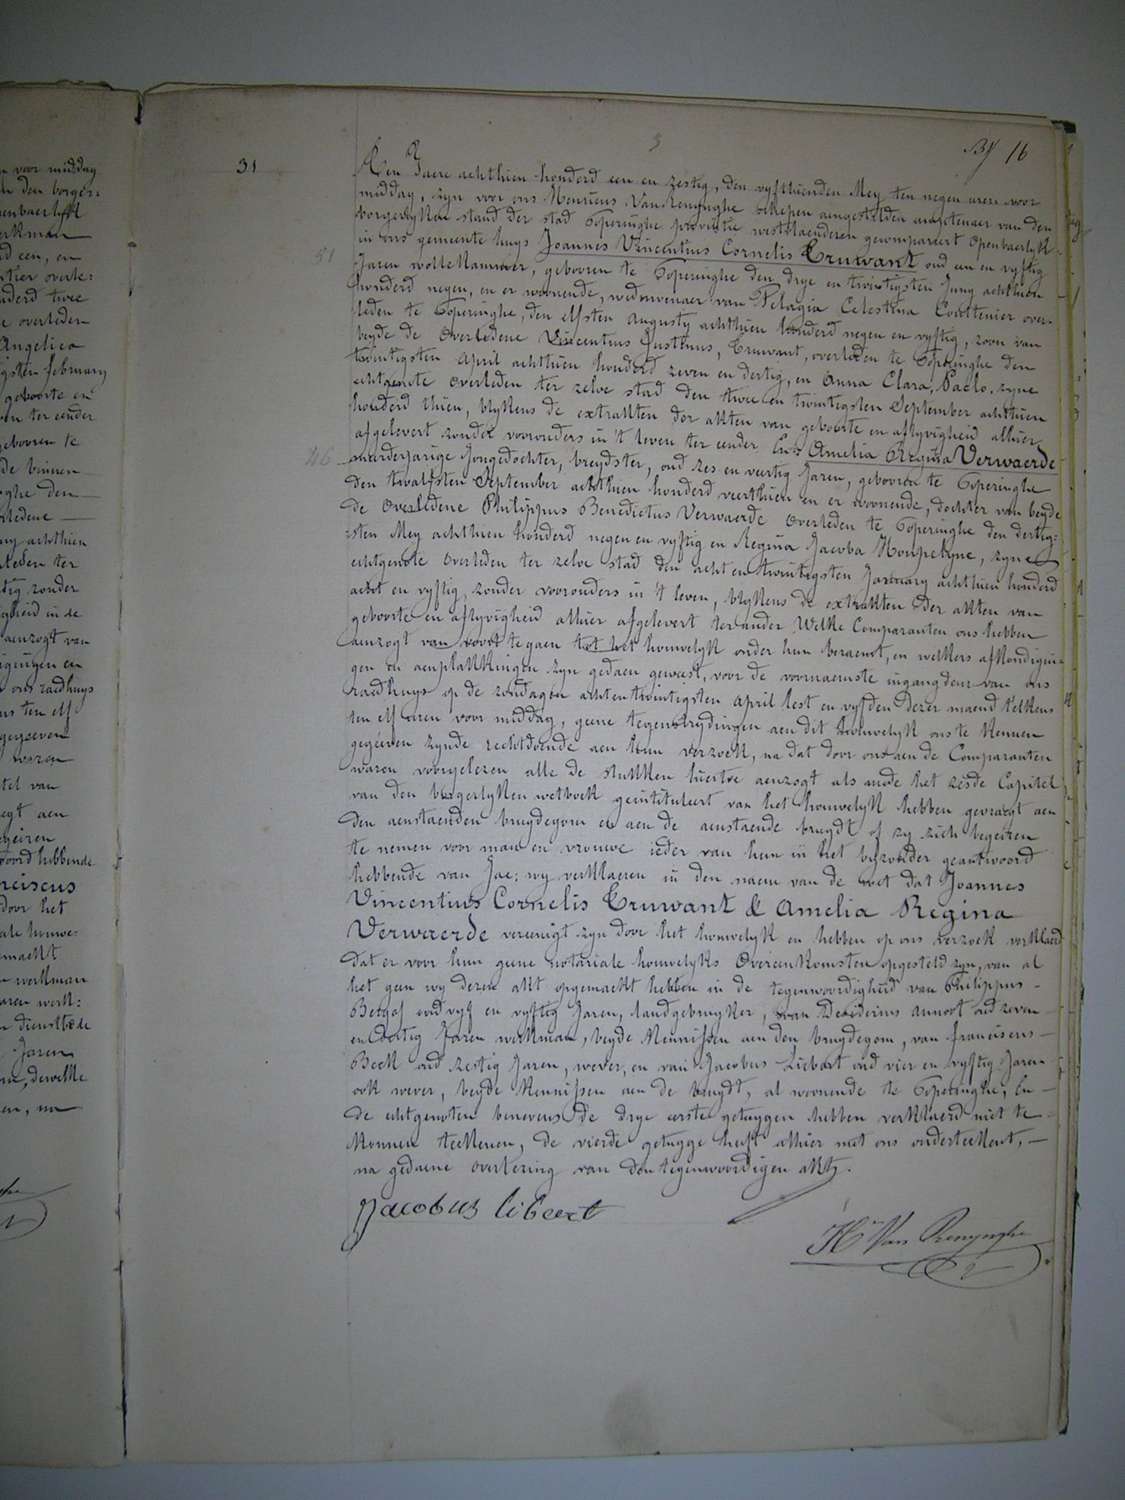 n voor middag
den borger:
genbaerlyk
erkman
d een, en
overle:
aderd twee
e overleden
Angelica
gsten february
geboorte en
en ter eender
gebooren te
de binnen
ghe den
erledene
achthien
leden ter
tig zonder
gheid in de
aenzogt van
igingen en
ons raedhuys
ten elf
gegeven
waren
tel van
egt aen
egeiren
woord hebbende
nciscus
door het
ale houwe:
maekt
werkman
aren werk:
dienstbode
Jaren
dewelke
en, na
3
By 16
31
Den Jaere achthien honderd een en zestig, den vyfthienden Mey ten negen uren voor
middag, zyn voor ons Henricus Van Renynghe schepen aengestelden amptenaer van den
borgerlyken stand der stad Poperinghe provintie westvlaenderen gecompareert openbaerlyk
in ons gemeente huys Joannes Vincentius Cornelis Cruwant oud een en vyftig
51
Jaren wolle Kammer, gebooren te Poperinghe den drye en twintigsten Juny achthien
honderd negen, en er woonende, weduwenaer van Pelagia Celestina Couttenier over-
leden te Poperinghe, den elfsten augusty achthien honderd negen en vyftig, zoon van
beyde de overledene Vincentius Justinus, Cruwant, overleden te Poperinghe den
twintigsten april achthien honderd zeven en dertig, en Anna Clara, Paelo, zyne
echtgenote overleden ter zelve stad den twee en twintigsten September achthien
honderd thien, blykens de extrakten der akten van geboorte en aflyvigheid alhier
afgelevert zonder voorouders in 't leven ter eender En Amelia Regina Verwaerde
46
meerderjarige Jongedochter, breydster, oud zes en veertig Jaren, gebooren te Poperinghe
den twalfsten September achthien honderd veerthien en er woonende, dochter van beyde
de overledene Philippus Benedictus Verwaerde overleden te Poperinghe den dertig:
:sten Mey achthien honderd negen en vyftig en Regina Jacoba Houpelyne, zyne
echtgenote overleden ter zelve stad den acht en twintigsten January achthien honderd
acht en vyftig, zonder voorouders in 't leven, blykens de extrakten der akten van
geboorte en aflyvigheid alhier afgelevert ter ander Welke Comparanten ons hebben
aenzogt van voort te gaen tot het houwelyk onder hun beraemt, en welkers afkondigin-
gen en aenplakkingen zyn gedaen geweest, voor de voornaemste ingangdeur van ons
raedhuys op de zondagen acht en twintigsten april lest en vyfden dezer maend telkens
ten elf uren voor middag, geene tegenstrydingen aen dit houwelyk ons te kennen
gegeven zynde rechtdoende aen hun verzoek, na dat door ons aen de Comparanten
waren voorgelezen alle de stukken hiertoe aenzogt als mede het zesde Capitel
van den borgerlyken wetboek geintituleert van het houwelyk hebben gevraegt aen
den aenstaenden bruydegom en aen de aenstaende bruydt of zy zich begeiren
te nemen voor man en vrouwe ieder van hun in het byzonder geantwoord
hebbende van Jae; wy verklaeren in den naem van de wet dat Joannes
Vincentius Cornelis Cruwant & Amelia Regina
Verwaerde vereenigt zyn door het houwelyk en hebben op ons verzoek verklaerd
dat er voor hun geene notariale houwelyks Overeenkomsten opgesteld zyn, van al
het geen wy dezen akt opgemaekt hebben in de tegenwoordigheid van Philippus
Beegof oud vyf en vyftig Jaren, landgebruyker, van Desiderius annoot oud zeven
en dertig Jaren werkman, beyde Kennissen aen den bruydegom, van franciscus
Beck oud zestig Jaren, wever, en van Jacobus Liebart oud vier en vyftig Jaren
ook wever, beyde Kennissen aen de bruydt, al woonende te Poperinghe, En
de echtgenoten benevens de drye eerste getuygen hebben verklaerd niet te
konnen teekenen, de vierde getuyge heeft alhier met ons onderteekent,
na gedaene overlezing van den tegenwoordigen akt.
Jacobus libeert
H. Van Renynghe